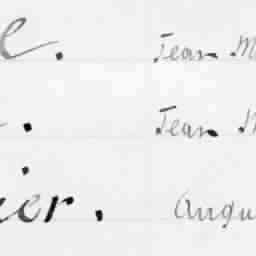 e. Jean M
. Jean M
ier. Augu